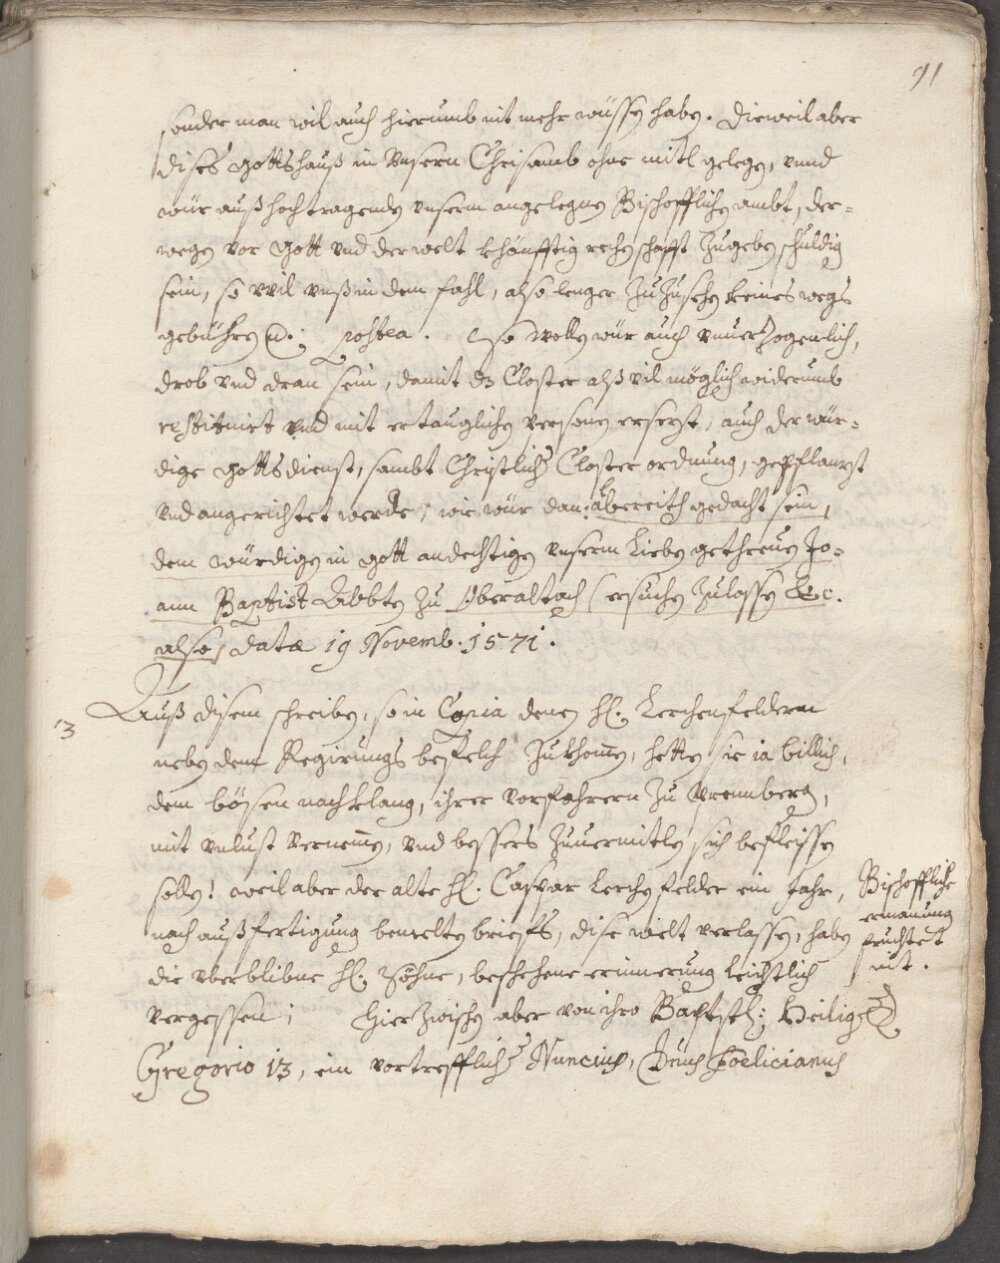 91
sonder man wil auch hierumb nit mehr wüssen haben. Dieweil aber
dises Gottshauß in unsern Chrisamb ohne mitl gelegen, unnd
wür auß hochtragenden unserm angelegnen Bischofflichen ambt, der=
wegen vor Gott und der welt khönfftig rechenschafft zugeben schuldig
sein, so wil unß in dem fahl, also lenger zuzusehen keines wegs
gebühren &. postea. so wollen wür auch unuerzogenlich,
drob und dran sein, damit dz Closter alß vil möglich widerumb
restituiert und mit ertauglichen personen ersezt, auch der wür=
dige Gottsdienst, sambt Christlicher Closter ordnung, gepflanzt
und angerichtet werde, wie wür dan albereith gedacht sein,
dem würdigen in Gott andechtigen unserm Lieben gethreuen Jo=
ann Baptist Abbten zu Oberaltach (ersuchen zulassen &c.
also, data 19 Novemb. 1571.
13 Auß disem schreiben, so in Copia denen hl. Lerchenfeldern
neben dem Regirungs befelch zukhomen, hetten sie ia billich,
dem bösen nachklang, ihrer vorfahrern zu Wrennberg,
mit unlust vernemen, und bessers zuuermitlen sich befleissen
sollen! weil aber der alte hl. Caspar Lerchenfelder ein Jahr,
nach außfertigung bemelten brieffs, dise welt verlassen, haben
die verblibne hl. Söhne, beschehene erinnerung leichtlich
vergessen; Hierzwischen aber von ihro Bäpstl: Heiligk.
Gregorio 13, ein vortrefflicher Nuncius, Felicianus
Bischoffliche
ermanung
fruchtet
nit.